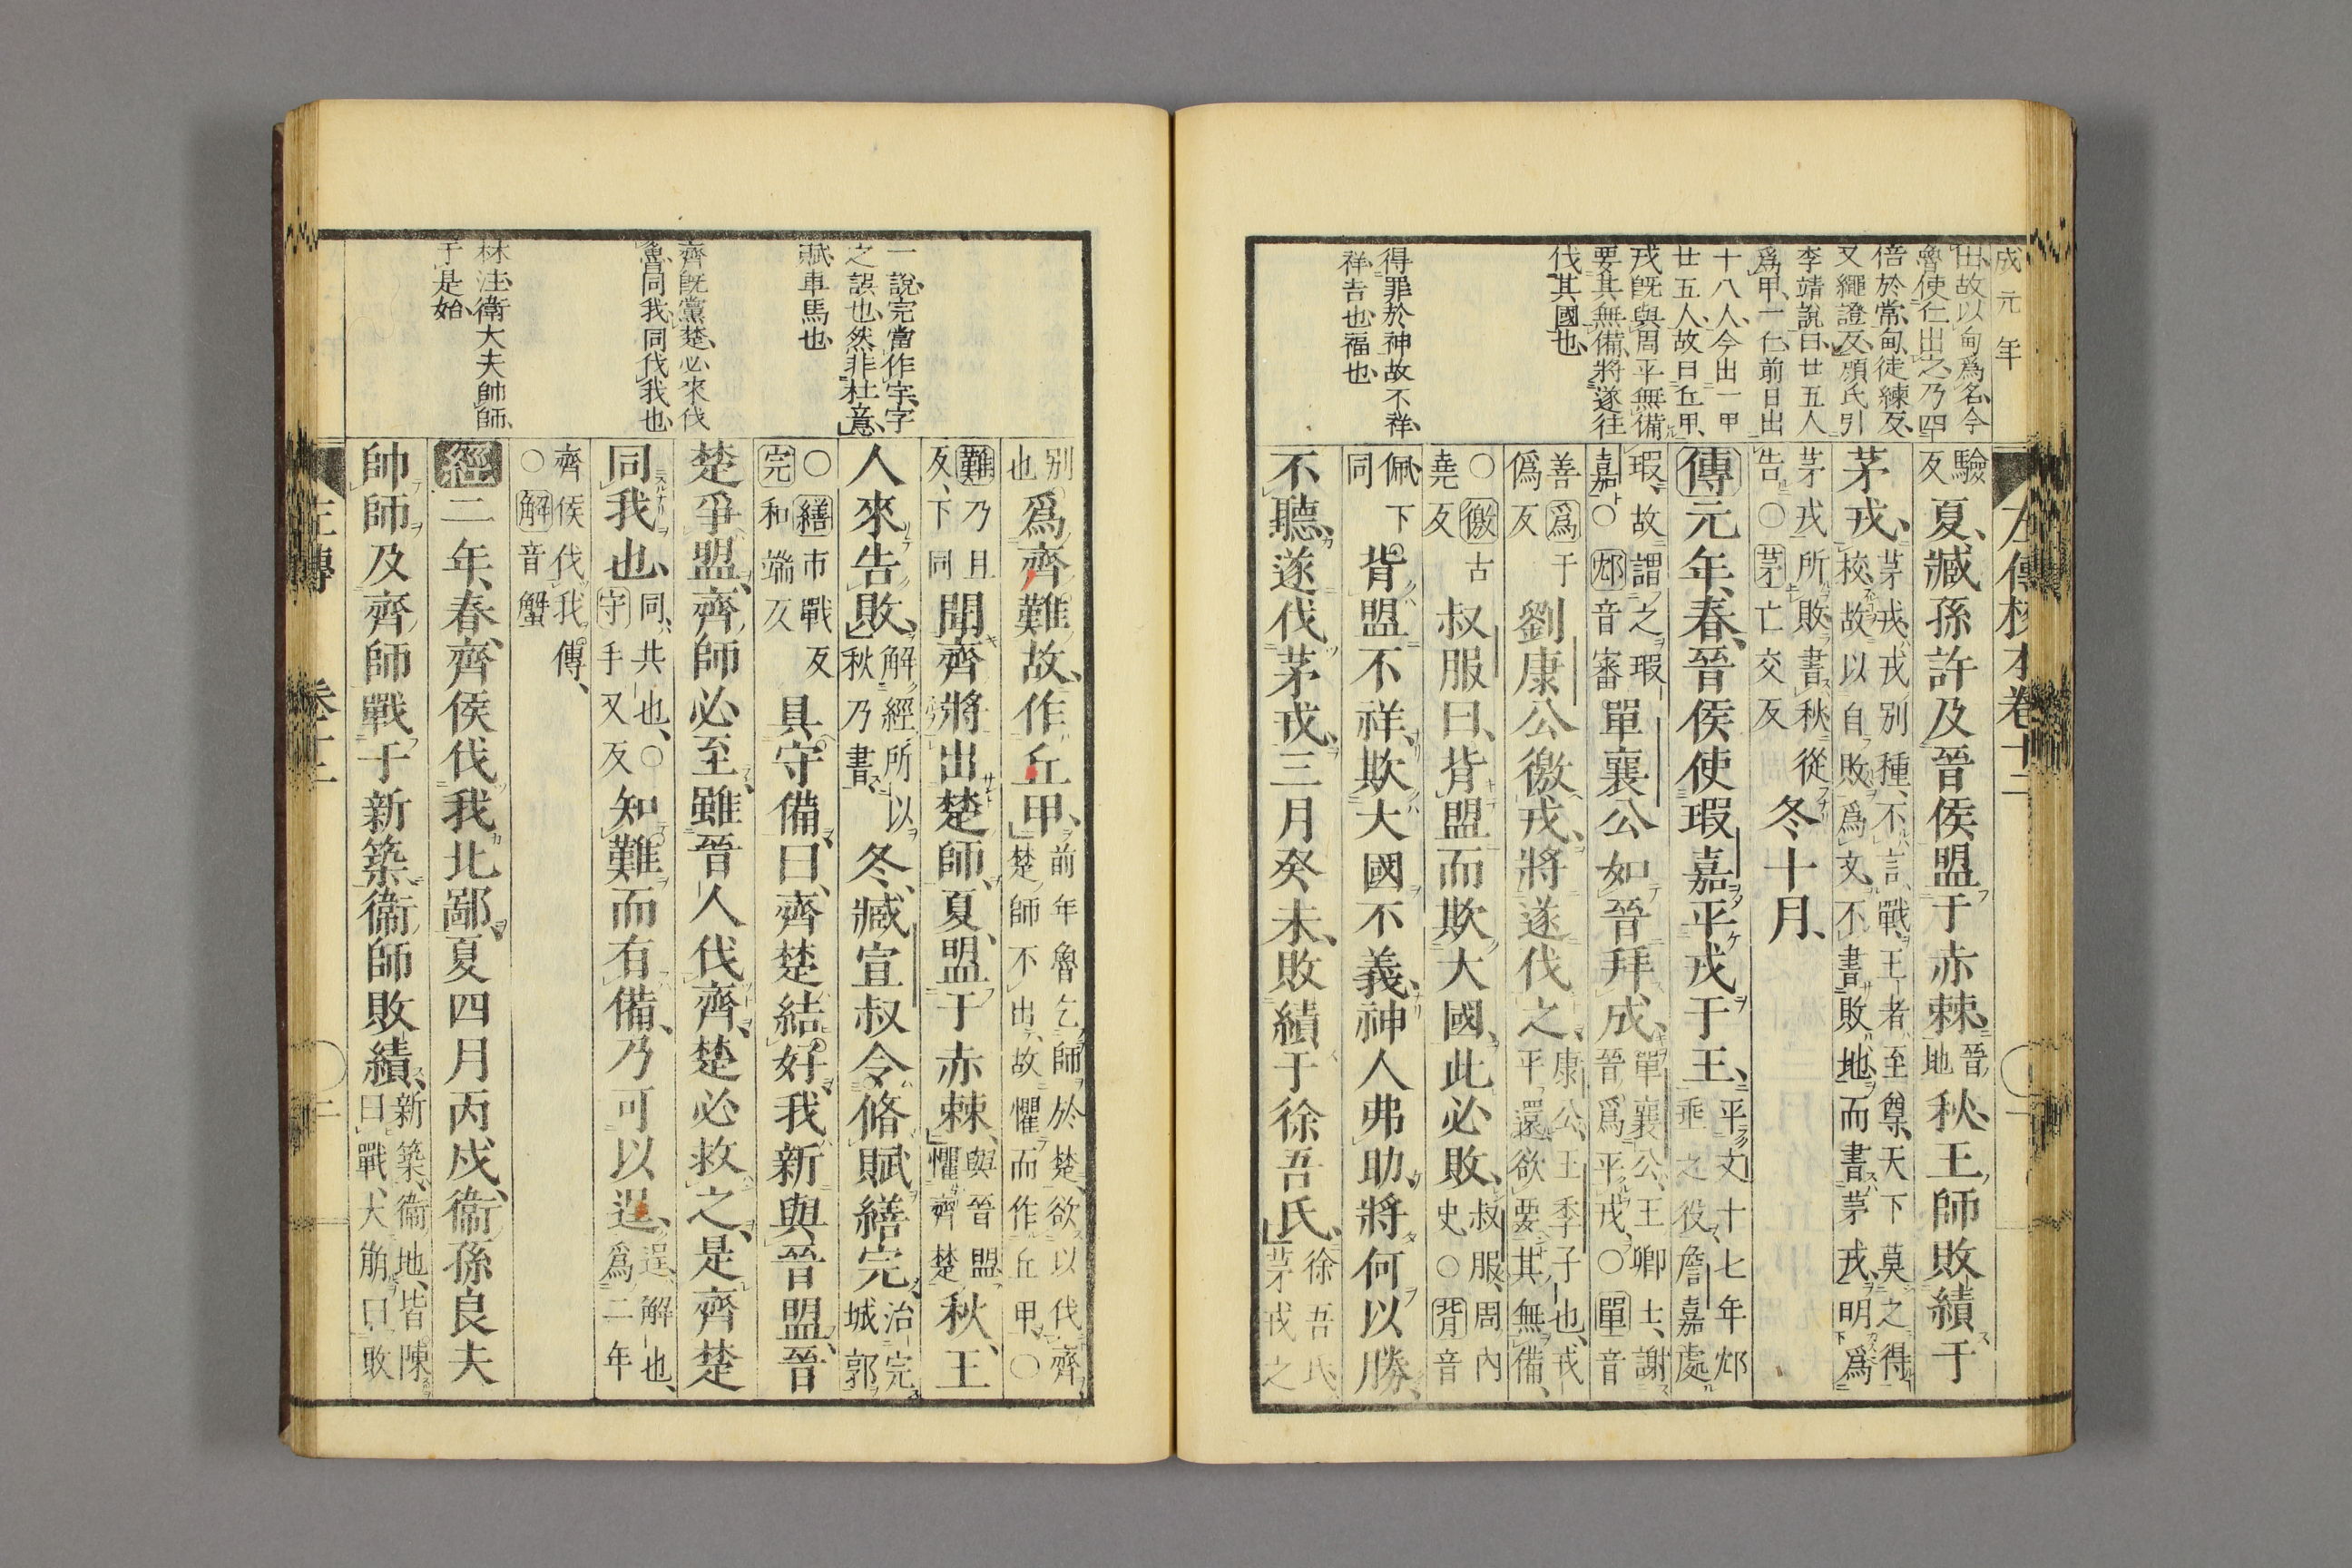 成元年
田故以甸爲名今
魯使仁出之乃四
倍於常甸徒練反
又繩證反頑氏引
李靖說曰廿五人
爲甲一仁前日出
十八人今出一甲
廿五人故曰丘甲
戎既與周平無備
要其無備將遂往
伐其國也
得罪於神故不祥
祥吉也福也
左傳校本卷十二
驗反夏臧孫許及晉侯盟于赤棘晉地秋王師敗績于
茅戎茅戎戎別種不言戰王者至尊天下莫之得校故以自敗爲文不書敗地而書茅戎明爲
茅戎所敗書秋從告○茅亡交反冬十月
傳元年春晉侯使瑕嘉平戎于王平文十七年邥垂之役詹嘉處
瑕故謂之瑕嘉○邥音審單襄公如晉拜成單襄公王卿士謝晉爲平戎○單音
善爲于僞反劉康公徼戎將遂伐之康公王季子也戎平還欲要其無備
○徼古堯反叔服曰背盟而欺大國此必敗叔服周內史○背音
佩下同背盟不祥欺大國不義神人弗助將何以勝
不聽遂伐茅戎三月癸未敗績于徐吾氏徐吾氏茅戎之
一說完當作宇字
之誤也然非杜意
賦車馬也
齊既黨楚必來伐
魯同我同伐我也
林注衛大夫帥師
于是始
別也爲齊難故作丘甲前年魯乞師於楚欲以伐齊楚師不出故懼而作丘甲○
難乃旦反下同聞齊將出楚師夏盟于赤棘與晉盟懼齊楚秋王
人來告敗解經所以秋乃書冬臧宣叔令脩賦繕完治完城郭
○繕市戰反完和端反具守備曰齊楚結好我新與晉盟晉
楚爭盟齊師必至雖晉人伐齊楚必救之是齊楚
同我也同共也○守手又反知難而有備乃可以逞逞解也爲二年
齊侯伐我傳○解音蟹
經二年春齊侯伐我北鄙夏四月丙戌衛孫良夫
帥師及齊師戰于新築衛師敗績新築衛地皆陳曰戰大崩曰敗
左傳 卷十二 二